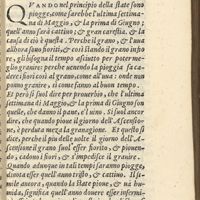 QVANDO nel principio della state sono
piogge, come sarebbe l'ultima settima
na di Maggio, & la prima di Giugno;
quell'anno sarà cattiuo, & gran carestia, & la
causa di ciò è questa. Perche il grano, & l'uua
allhora sono fioriti, & così stando il grano in fio
re, gli bisogna il tempo asciutto per poter me-
glio granire: perche uenendo la pioggia fa ca-
dere i fiori così al grano, come all'uua: onde non
ponno granire, si come fanno al buon tempo.
Et però si suol dire per prouerbio, che l'ultima
settimana di Maggio, & la prima di Giugno son
quelle, che danno il pane, e'l uino. Si suol ancor
dire, che quando pioue il giorno dell'Ascensio-
ne, è perduta mezza la granagione. Et questo si
dice, perche il piu delle uolte il giorno dell'A-
scensione il grano suol esser fiorito, & piouen-
do, cadono i fiori, & s'impedisce il granire.
Quando adunque in tali tempi saranno piogge,
dinota esser quell'anno tristo, & cattiuo. Il si-
mile ancora, quando la state pioue, & è hu-
mida, significa quell'anno douere esser infermi-